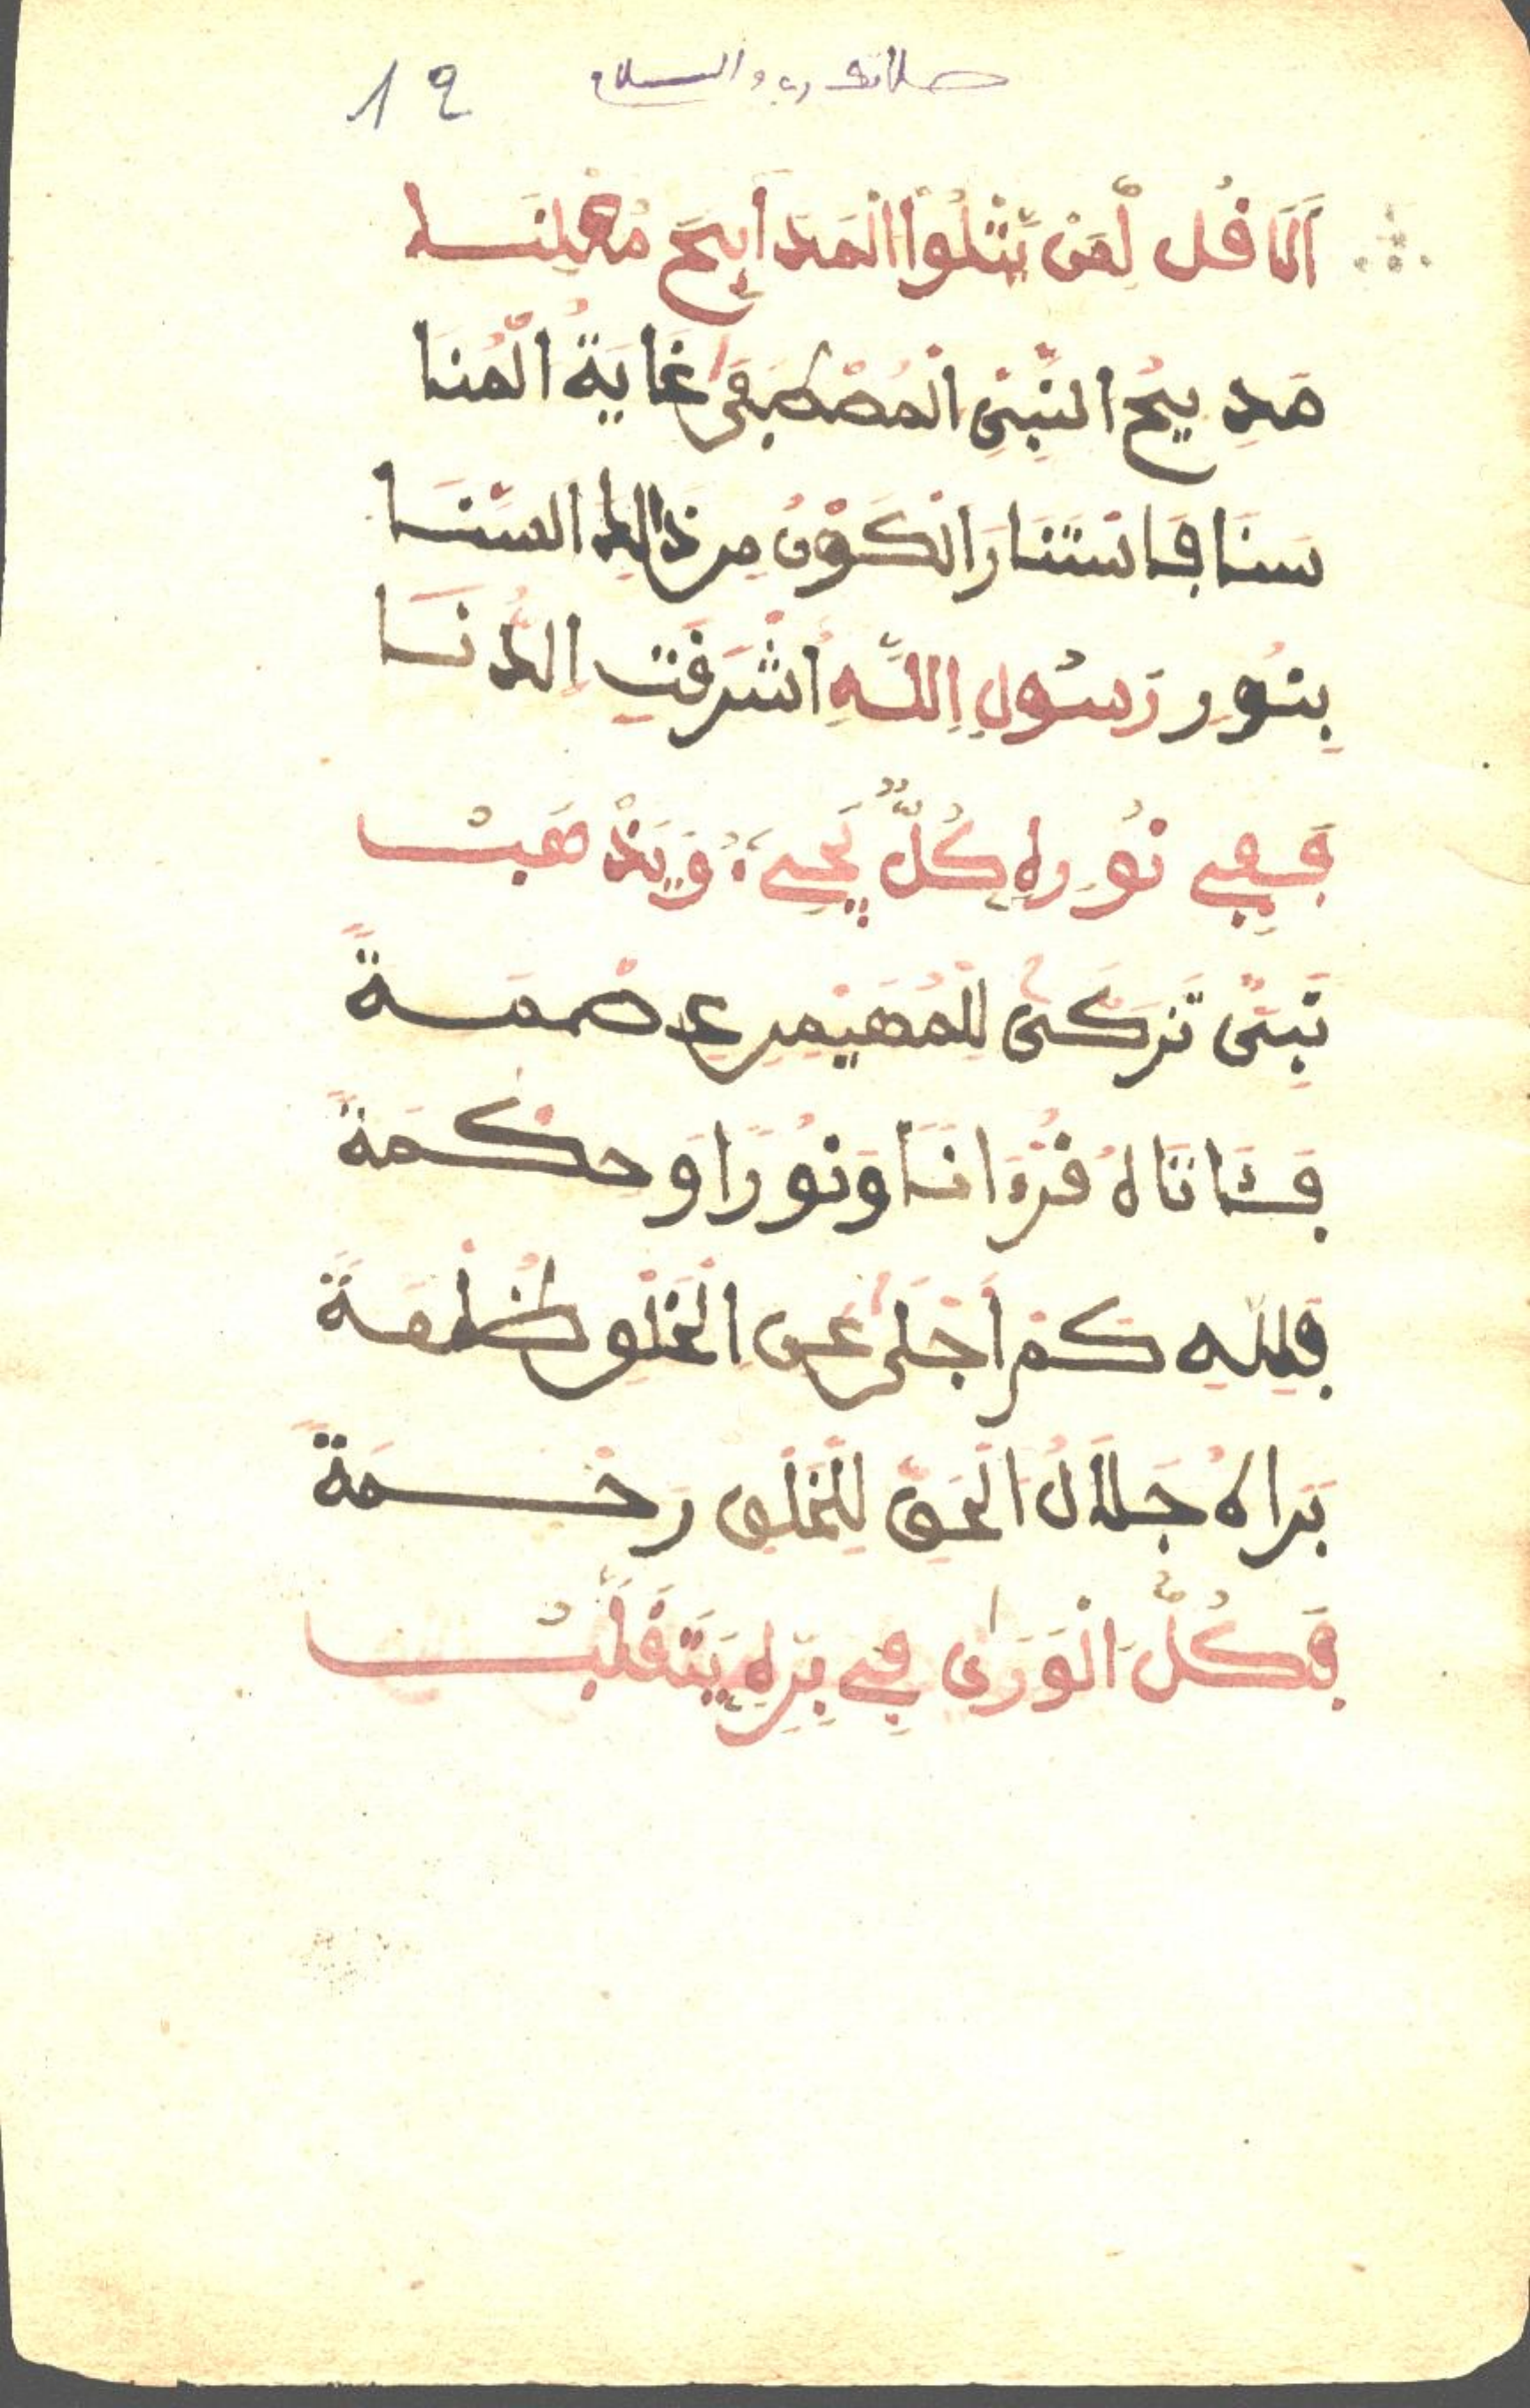 صلاة ربي والسلام 12
اَلَا قُل لِّمَنْ يَّتْلُواْ الْمَدَايِحَ مُعْلِنَا
مَدِيحُ النَّبِيِّ الْمُصْطَفَى غَايَةُ الْمُنَا
سَنَا فَاسْتَنَارَ الْكَوْنُ مِن ذَالِكَ السَّنَا
بِنُورِ رَسُولِ اِللَّهِ أَشْرَقَتِ الدُّنَا
فَفِي نُورِهِ كُلٌّ يَّجِيءُ وَيَذْهَبُ
نَبِيٌّ تَزَكَّى لِلْمُهَيْمِنِ عِصْمَةً
فَـَٔاتَاهُ قُرْءَانًا وَنُورًا وَحِكْمَةً
فَلِلَّهِ كَمْ أَجْلَى عَنِ الْخَلْقِ ظُلْمَةً
بَرَاهُ جَلَالُ الْحَقِّ لِلْخَلْقِ رَحْمَةً
فَكُلُّ الْوَرَى فِي بِرِّهِ يَتَقَلَّبُ